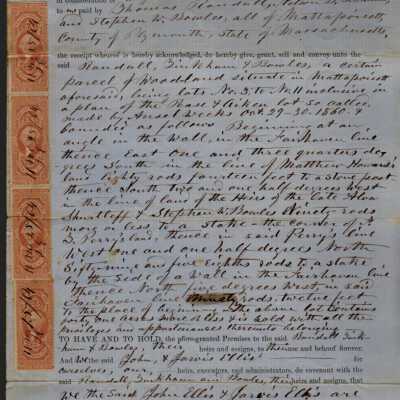 in consideration of
to me paid by Thomas Randall,
and Stephen W. Bowles, all of Mattapoisett,
County of Plymouth, State of Massachusetts,
the receipt whereof is hereby acknowledged, do hereby give, grant, sell and convey unto the
said Randall, Tinkham & Bowles, a certain
parcel of Woodland situate in Mattapoisett
aforesaid, being lots No. 3, to No. 11 inclusive, in
a plan of the Chase & Aiken lot so called
made by Ansel Weeks Oct. 29-30. 1860 &
bounded as follows Beginning at an
angle in the Wall, in the Fairhaven line
thence East one and three quarters deg
rees South in the line of Matthew Howard's
land eighty rods fourteen feet to a stone post
thence South two and one half degrees West
in the line of land of the Heirs of the late Alva
Shurtleff & Stephen W. Bowles Ninety rods
more or less to a stake the corner of
Perry's land, thence in said Perry's line
West one and one half degrees North
Sixty-nine and five eighths rods to a stake
on the Led of a Wall in the Fairhaven line
thence North five degrees West, in said
Fairhaven line ninety rods, twelve feet
to the place of beginning. The above lot contains
acres more or less & is sold with all the
privileges and appurtenances thereunto belonging
TO HAVE AND TO HOLD, the afore-granted Premises to the said Randall Tink-
ham & Bowles, their heirs and assigns, to their use and behoof forever.
And we the said John, & Jarvis Ellis
ourselves, our, heirs, executors, and administrators, do covenant with the
said Randall, Tinkham and Bowles, their heirs and assigns, that
we the said John Ellis & Jarvis Ellis are